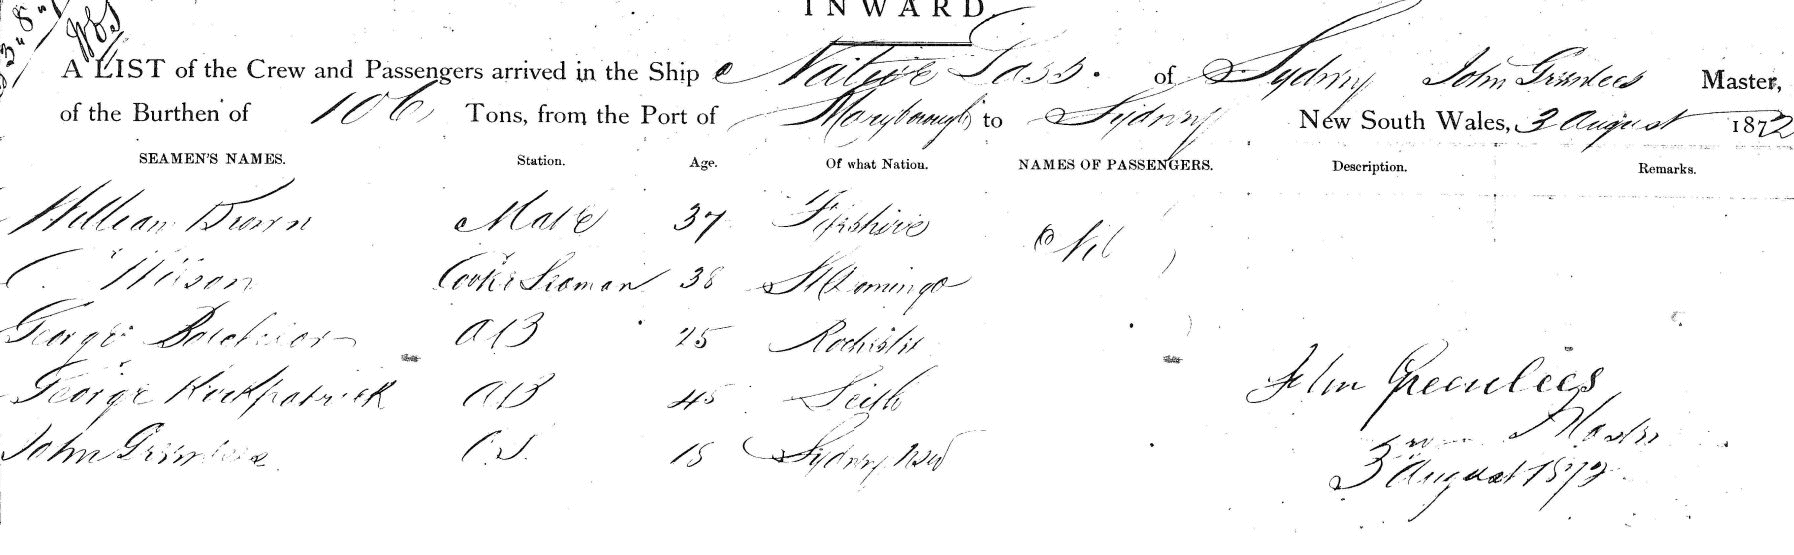 INWARD.
A LIST of the Crew and Passengers arrived in the Ship Native Lass. of Sydney John Greenlees Master,
of the Burthen of 106 Tons, from the Port of Maryborough to Sydney New South Wales, 3 August 1872
SEAMEN'S NAMES. Station. Age. Of what Nation. NAMES OF PASSENGERS. Description. Remarks.
William Brown Mate 37 Fifeshire Nil
C. Wilson Cook & Seaman 38 St Domingo
George AB 25
George Kirkpatrick AB 45 Leith
John Greenlees O.S. Sydney NSW
John Greenlees
Master
3 August 1872